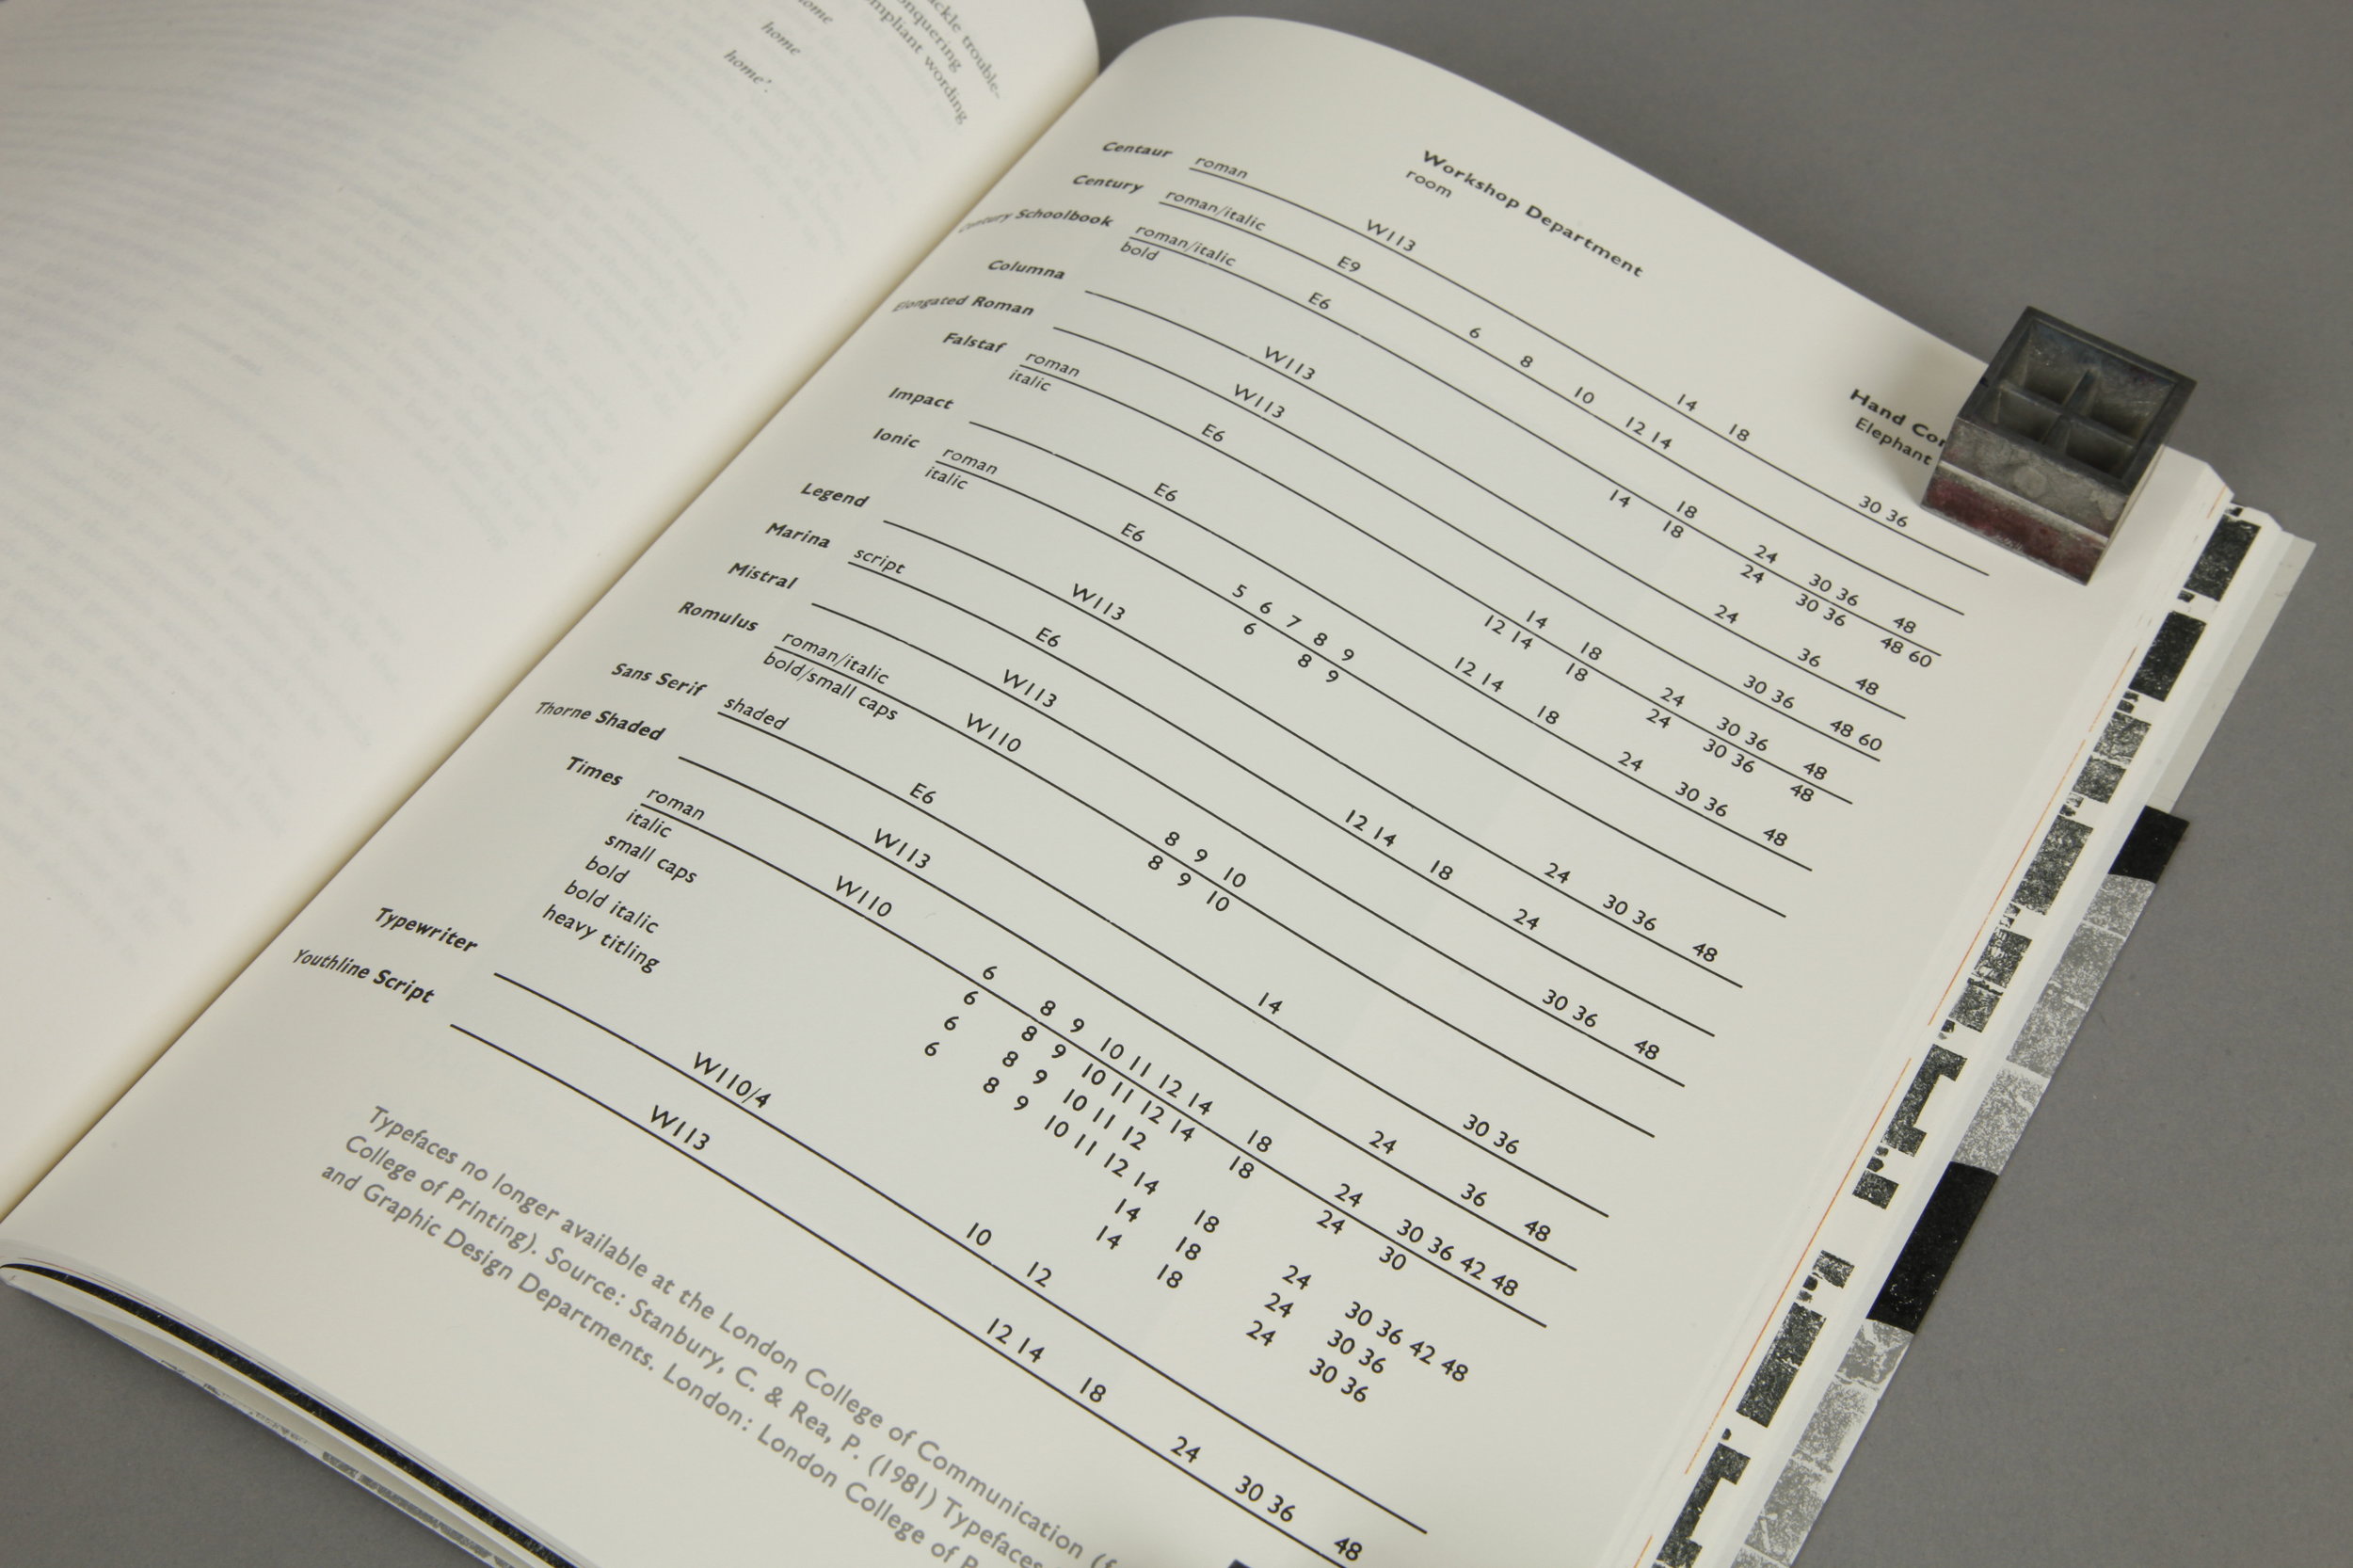 home
home'.
trouble-
wording
Workshop Department
room
Elephant
Centaur roman W113 14 18 30 36
Century roman/italic E9 6 8 10 12 14
Century Schoolbook roman/italic E6 18 24 30 36 48
bold 14 18 24 30 36 48 60
Columna W113 24 36 48
Elongated Roman W113 30 36 48 60
Falstaf roman E6 14 18 24 30 36 48
italic 12 14 18 24 30 36 48
Impact E6 12 14 18 24 30 36 48
Ionic roman E6 5 6 7 8 9
italic 6 8 9
Legend W113 24 30 36 48
Marina script E6 12 14 18 24
Mistral W113 30 36 48
Romulus roman/italic W110 8 9 10
bold/small caps 8 9 10
Sans Serif shaded E6 14 30 36
Thorne Shaded W113 24 36 48
Times roman W110 6 8 9 10 11 12 14 18 24 30 36 42 48
italic 6 8 9 10 11 12 14 18 24 30
small caps 6 8 9 10 11 12
bold 6 8 9 10 11 12 14 18 24 30 36 42 48
bold italic 14 18 24 30 36
heavy titling 14 18 24 30 36
Typewriter W110/4 10 12
Youthline Script W113 12 14 18 24 30 36 48
Typefaces no longer available at the London College of Communication (f
College of Printing). Source: Stanbury, C. & Rea, P. (1981) Typefaces
and Graphic Design Departments. London: London College of P